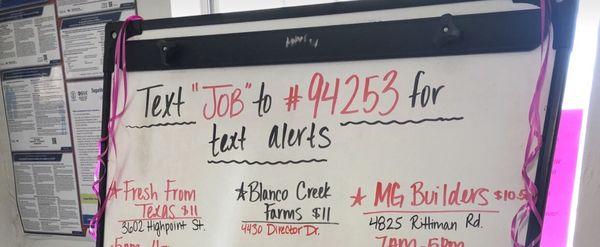 Text "JOB" to #94253 for
text alerts
* Fresh From
Texas $11
3602 Highpoint St.
* Blanco Creek
Farms $11
4430 Director Dr.
* MG Builders $10.5
4825 Rittiman Rd.
7am-5pm